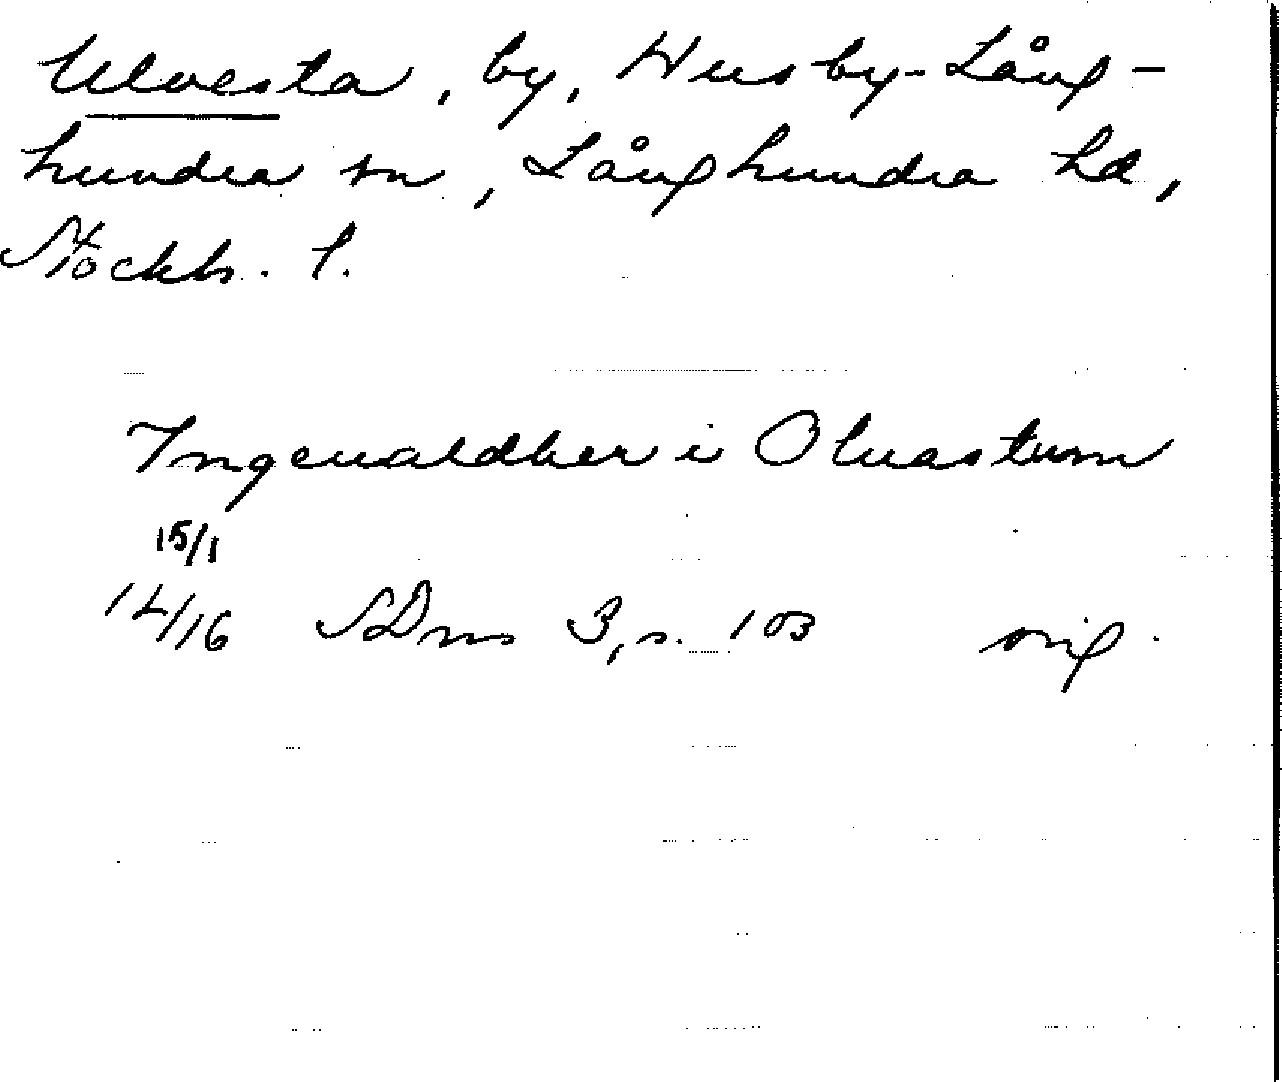 Ulvesta, by, Husby-Lång-
hundra sn, Långhundra hd,
Stockh. l.
Ingeualdher i Oluastum
15/1
14/16 SDns 3, s. 103 orig.